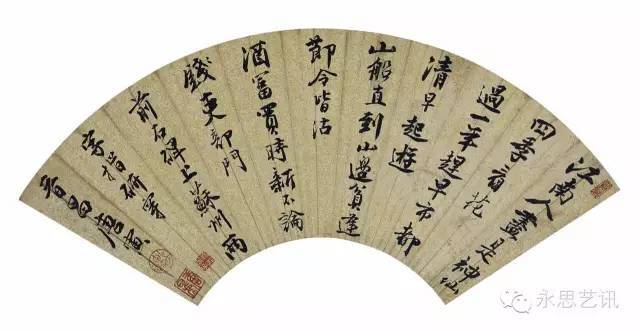 江南人盡是神仙
四季看花
過一年趕早市都
清早起遊
山船直到山邊貧逢
節令皆沽
酒富買時新不論
錢吏部門
前石碑上蘇州兩
字指研穿
晉昌唐寅
永思艺讯